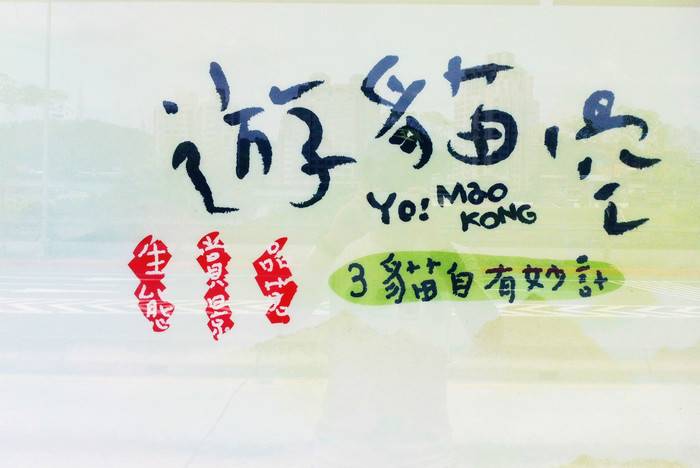 遊貓空
Yo! MAO
KONG
生態
賞景
品茗
3貓自有妙計